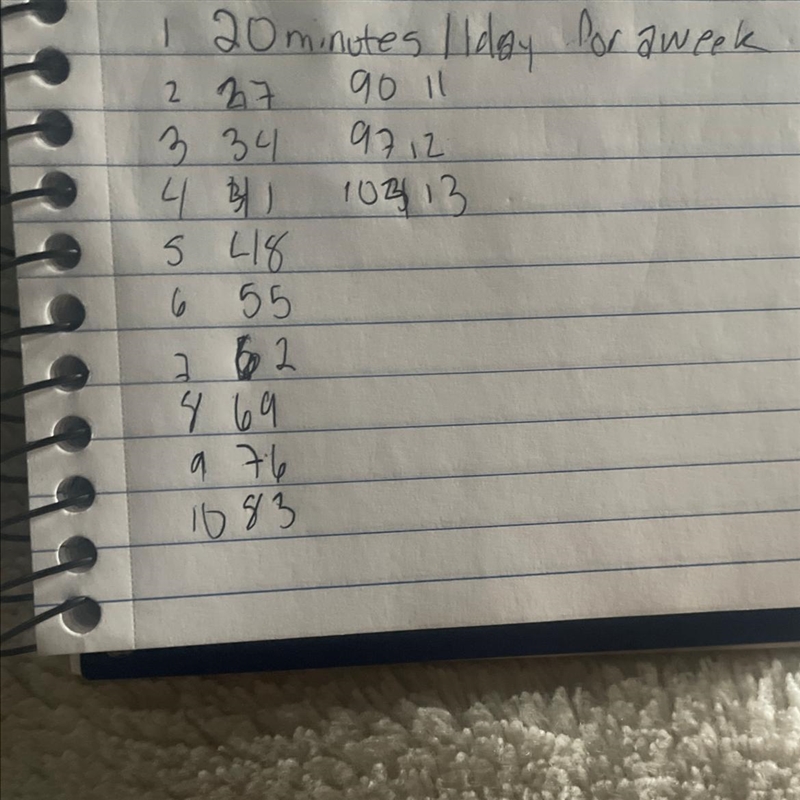 1 20 minutes / 1 day for a week
2 27 90 11
3 34 97 12
4 41 104 13
5 48
6 55
7 62
8 69
9 76
10 83